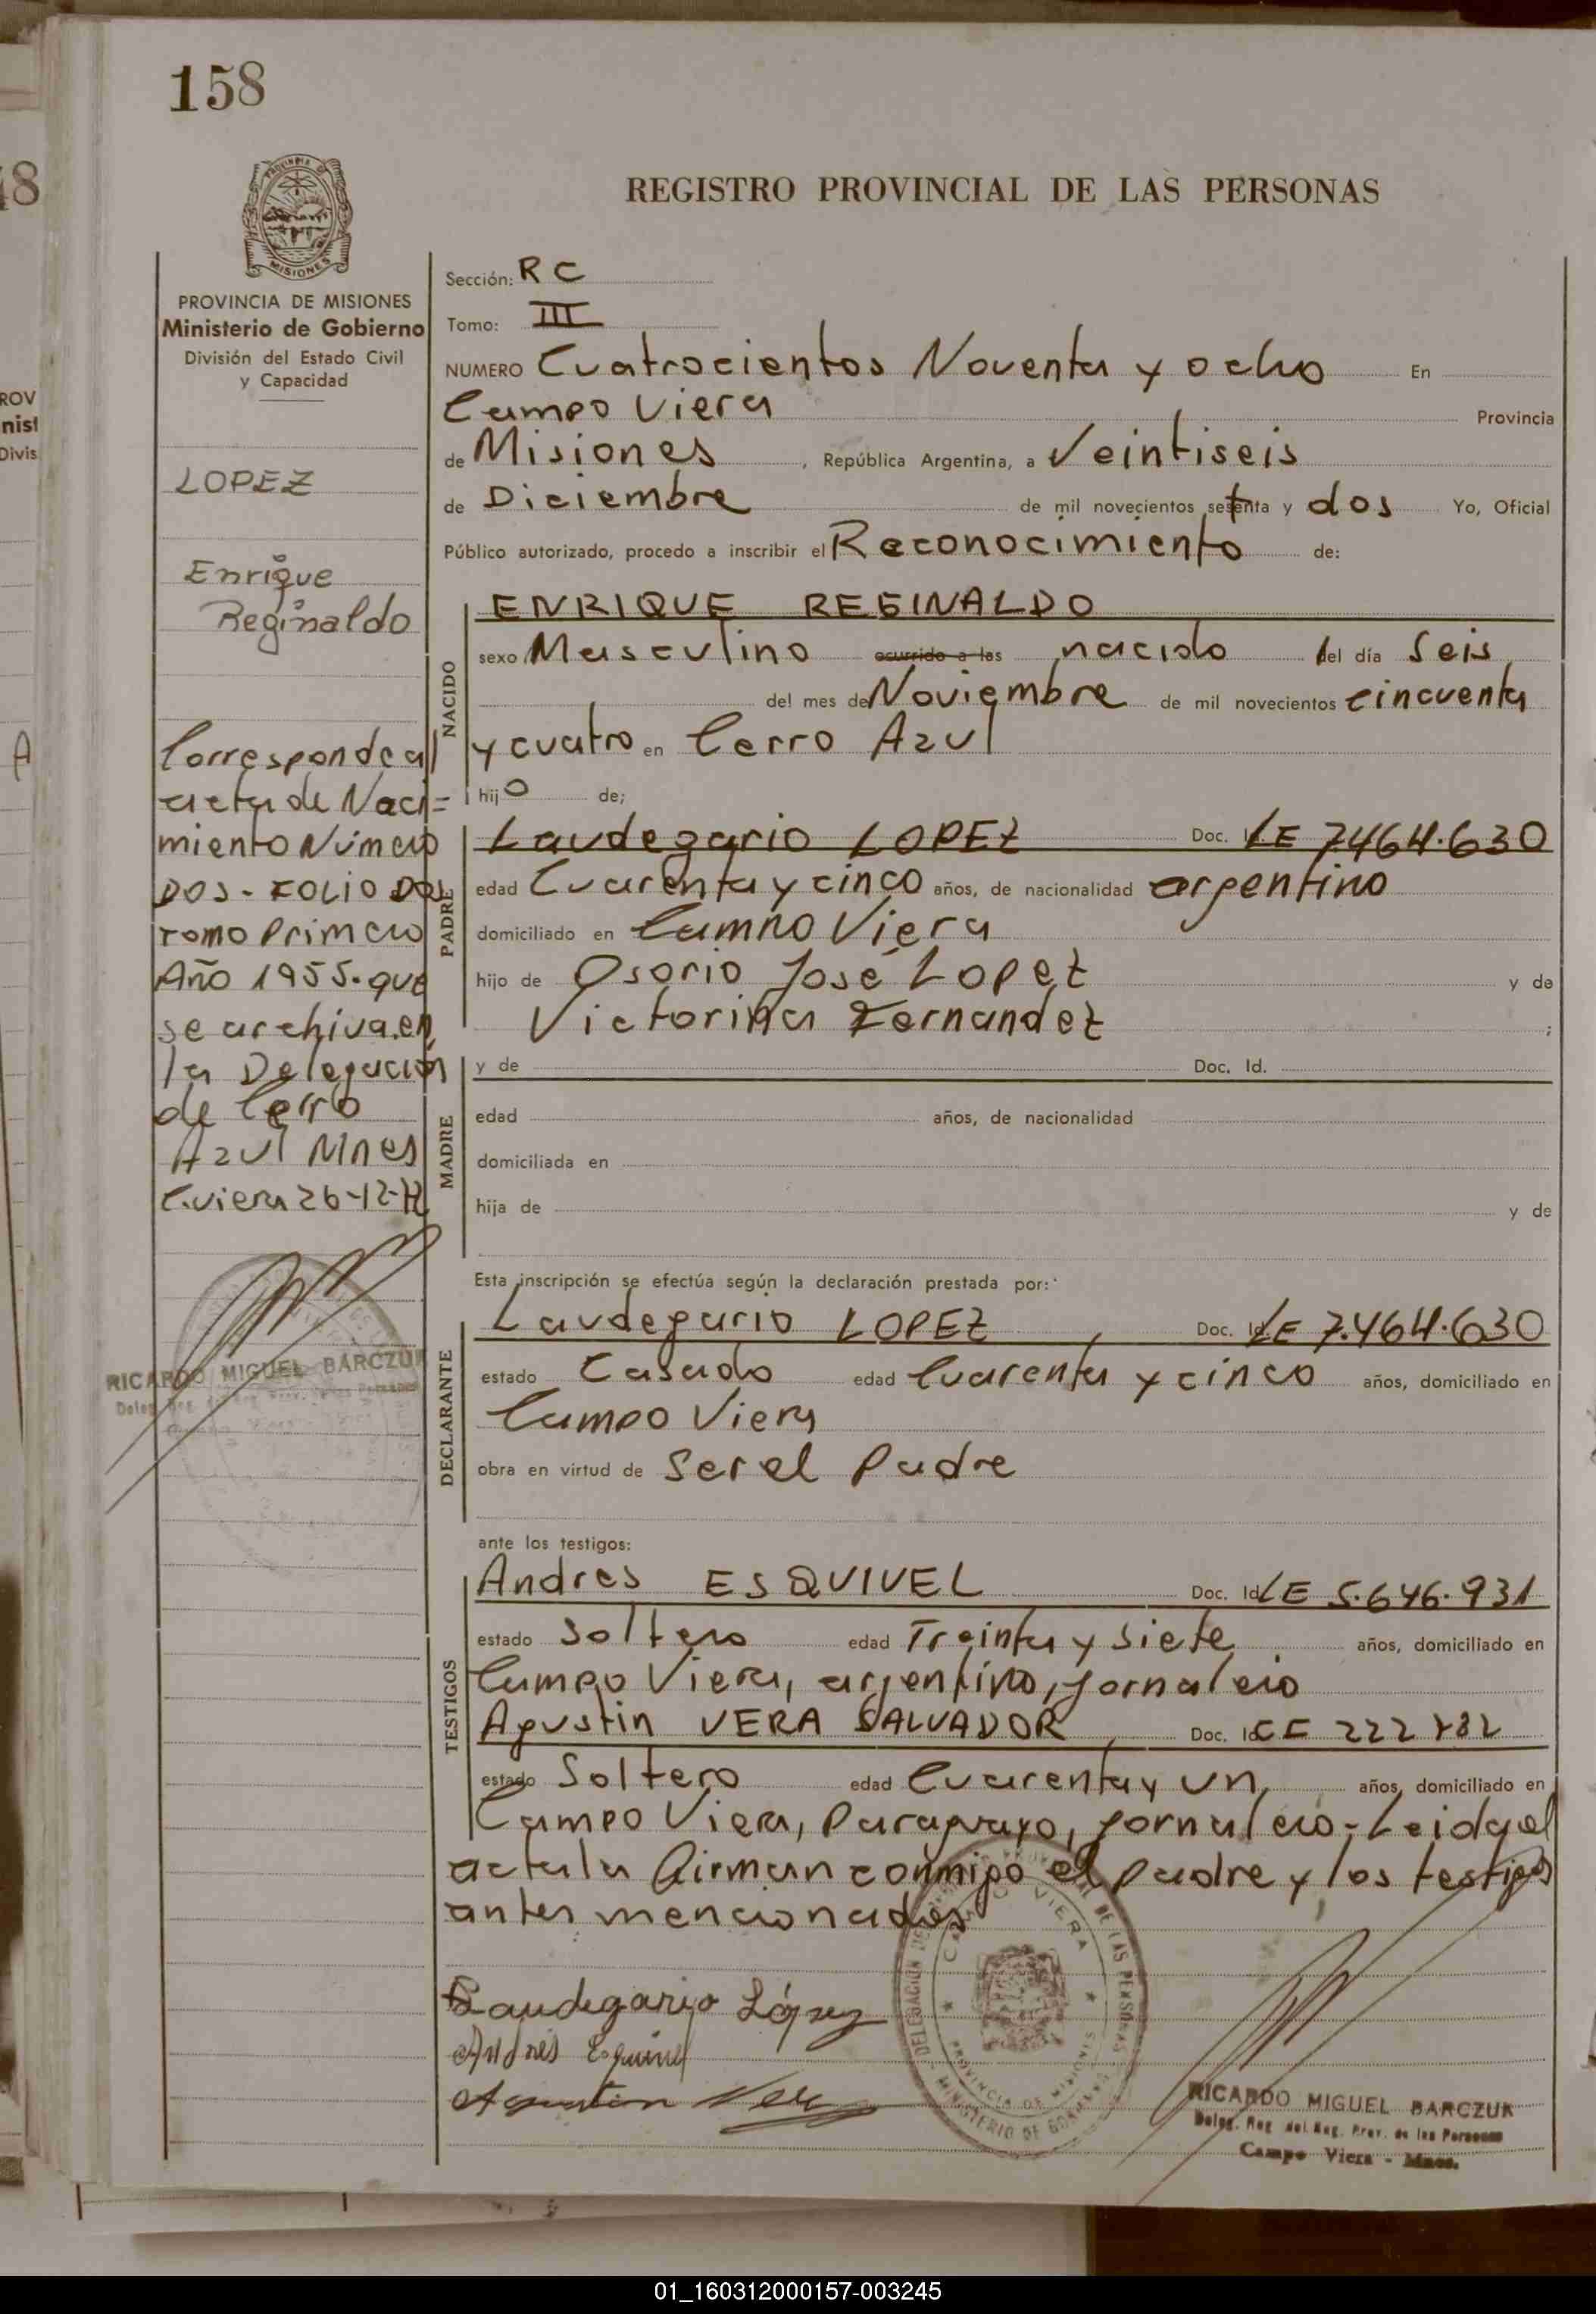 158
REGISTRO PROVINCIAL DE LAS PERSONAS
PROVINCIA DE MISIONES
Ministerio de Gobierno
División del Estado Civil
y Capacidad
LOPEZ
Enrique
Reginaldo
Corresponde al
acta de Naci=
miento Número
DOS - FOLIO DOS
TOMO Primero
Año 1955. que
se archiva en
la Delegación
de Cerro
Azul Mnes
C. viera 26-12-72
RICARDO MIGUEL BARCZUK
Sección: RC
Tomo: III
NUMERO Cuatrocientos Noventa y ocho En
Campo Viera Provincia
de Misiones, República Argentina, a Veintiseis
de Diciembre de mil novecientos setenta y dos Yo, Oficial
Público autorizado, procedo a inscribir el Reconocimiento de:
NACIDO
ENRIQUE REGINALDO
sexo Masculino ocurrido a las nacido del día Seis
del mes de Noviembre de mil novecientos cincuenta
y cuatro en Cerro Azul
hijo de;
PADRE
Laudegario LOPEZ Doc. LE 7.464.630
edad Cuarenta y cinco años, de nacionalidad argentino
domiciliado en Campo Viera
hijo de Osorio José Lopez y de
Victorina Fernandez ;
MADRE
y de Doc. Id.
edad años, de nacionalidad
domiciliada en
hija de y de
Esta inscripción se efectúa según la declaración prestada por:
DECLARANTE
Laudegario LOPEZ, Doc. Id LE 7.464.630
estado Casado edad Cuarenta y cinco años, domiciliado en
Campo Viera
obra en virtud de Ser el Padre
ante los testigos:
TESTIGOS
Andres ESQUIVEL Doc. Id LE 5.646.931
estado Soltero edad Treinta y Siete años, domiciliado en
Campo Viera, argentino, jornalero
Agustin VERA SALVADOR, Doc. Id
estado Soltero edad Cuarenta y un, años, domiciliado en
Campo Viera, Paraguayo, jornalero - Leida el
acta la firman conmigo el padre y los testigos
antes mencionados
Laudegario López
Andres Esquivel
Agustin Vera
DELEGACION DEL REGISTRO PROVINCIAL DE LAS PERSONAS
CAMPO VIERA
PROVINCIA DE MISIONES
MINISTERIO DE GOBIERNO
RICARDO MIGUEL BARCZUK
Deleg. Reg. del Reg. Prov. de las Personas
Campo Viera - Mnes.
01_160312000157-003245